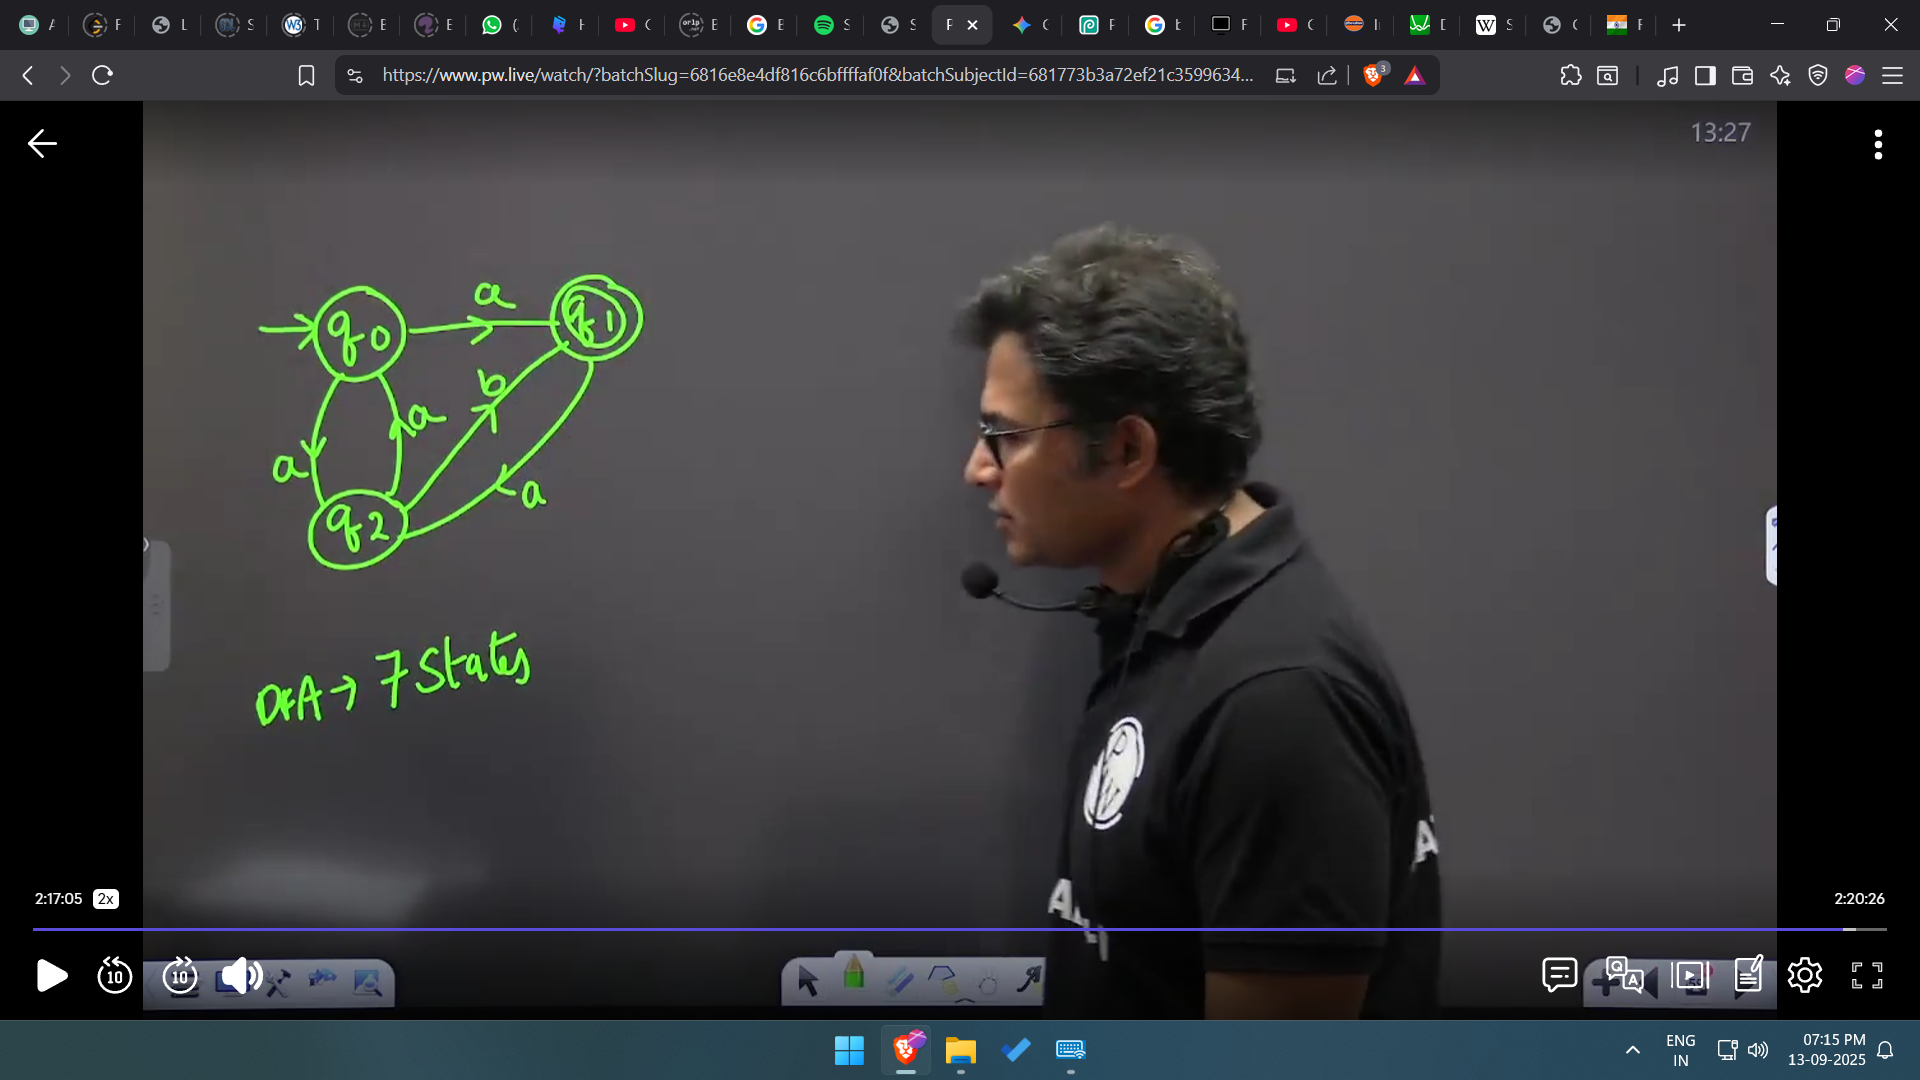 A
F
L
S
T
E
E
(
H
C
E
E
S
S
F
C
F
b
F
C
I
D
S
C
F
https://www.pw.live/watch/?batchSlug=6816e8e4df816c6bffffaf0f&batchSubjectId=681773b3a72ef21c3599634...
3
13:27
a
q0
q1
b
a
a
a
q2
DFA → 7 States
PW
2:17:05 2x
2:20:26
10
10
Q
A
ENG
IN
07:15 PM
13-09-2025